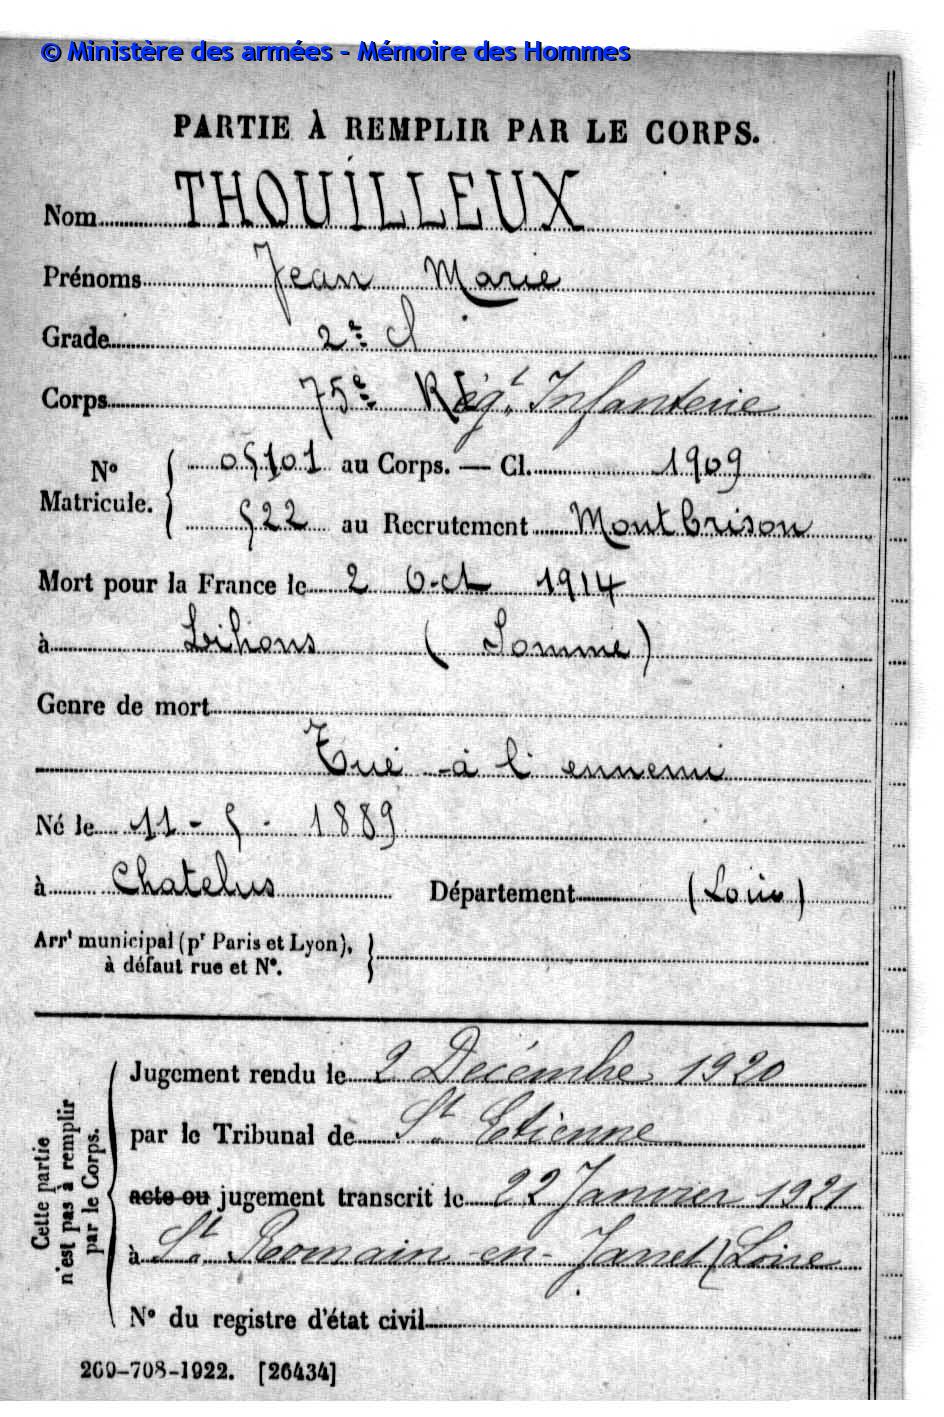 © Ministère des armées - Mémoire des Hommes
PARTIE À REMPLIR PAR LE CORPS.
Nom THOUILLEUX
Prénoms Jean Marie
Grade 2e Cl
Corps 75e Régt Infanterie
No Matricule. 05101 au Corps. — Cl. 1909
522 au Recrutement Montbrison
Mort pour la France le 2 Oct 1914
à Lihons (Somme)
Genre de mort
Tué à l'ennemi
Né le 11-5-1889
à Chatelus Département (Loire)
Arrt municipal (pr Paris et Lyon), à défaut rue et No.
Cette partie n'est pas à remplir par le Corps.
Jugement rendu le 2 Décembre 1920
par le Tribunal de St Etienne
acte ou jugement transcrit le 22 Janvier 1921
à St Romain-en-Jarret (Loire
No du registre d'état civil
269-708-1922. [26434]